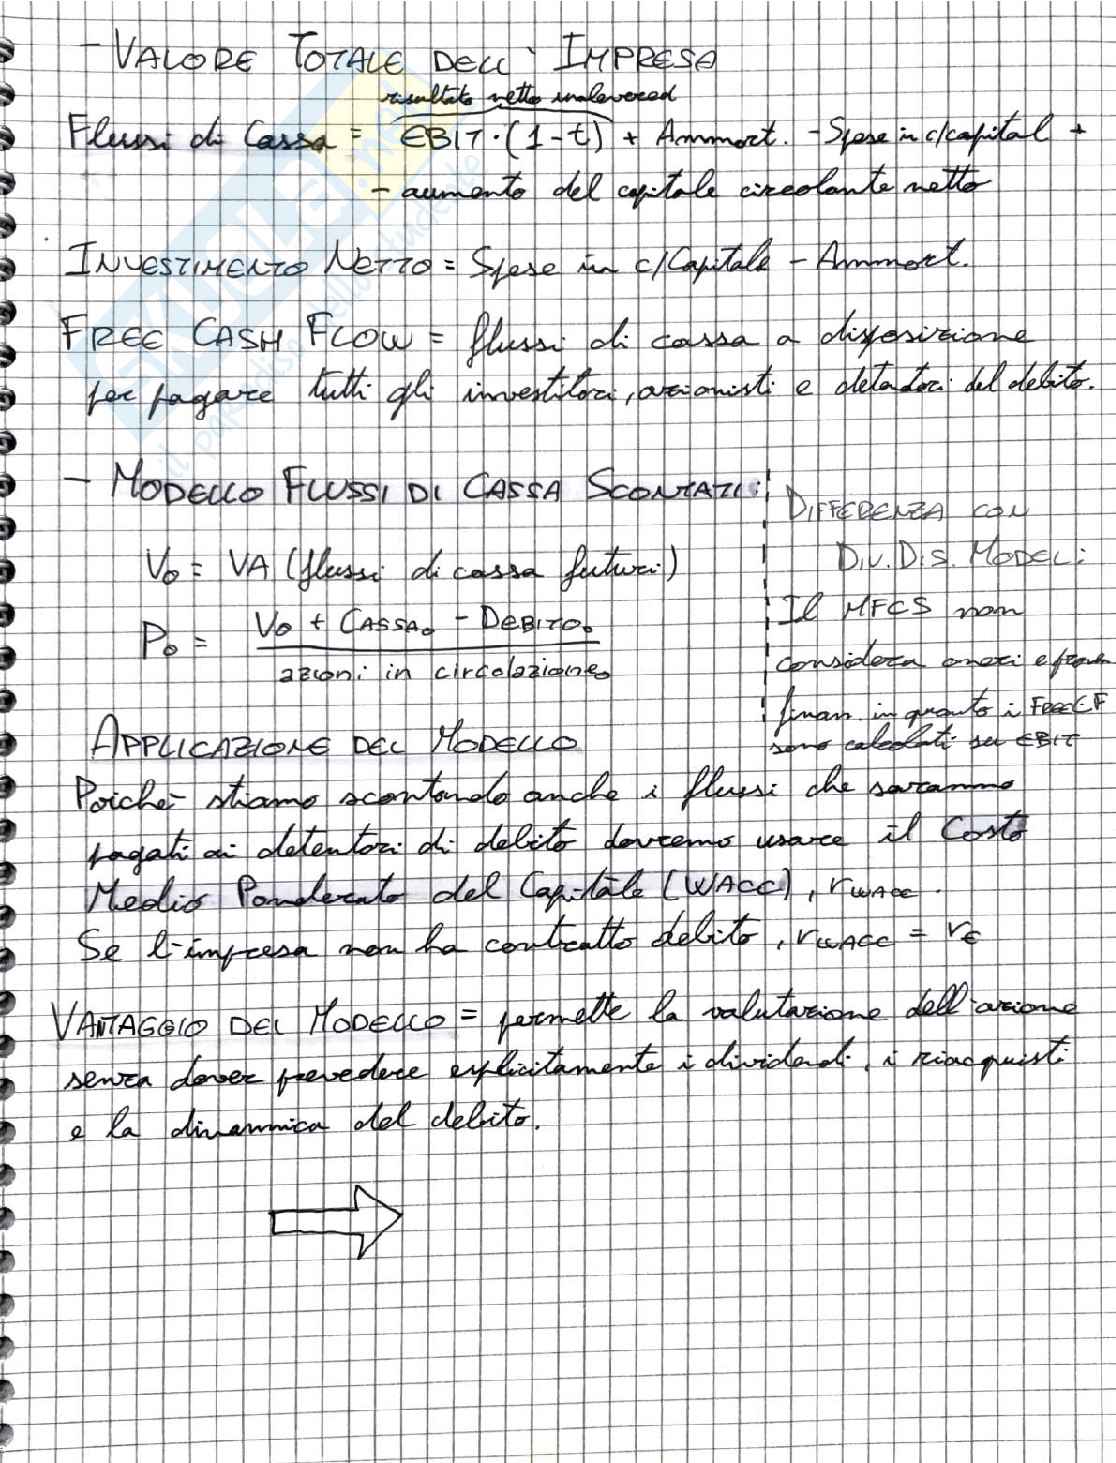 - VALORE TOTALE DELL' IMPRESA
risultato netto unlevered
Flussi di Cassa = EBIT·(1-t) + Ammort. - Spese in c/capital +
- aumento del capitale circolante netto
INVESTIMENTO NETTO = Spese in c/Capitale - Ammort.
FREE CASH FLOW = flussi di cassa a disposizione
per pagare tutti gli investitori, azionisti e detentori del debito.
- MODELLO FLUSSI DI CASSA SCONTATI:
V₀ = VA (flussi di cassa futuri)
P₀ = V₀ + CASSA₀ - DEBITO₀
azioni in circolazione₀
DIFFERENZA CON
DIV.DIS. MODEL:
Il MFCS non
considera oneri e
finan. in quanto i FREECF
sono calcolati su EBIT
APPLICAZIONE DEL MODELLO
Poiché stiamo scontando anche i flussi che saranno
pagati ai detentori di debito dovremo usare il Costo
Medio Ponderato del Capitale (WACC), rWACC.
Se l'impresa non ha contratto debito, rWACC = rE
VANTAGGIO DEL MODELLO = permette la valutazione dell'azione
senza dover prevedere esplicitamente i dividendi, i riacquisti
e la dinamica del debito.
SKUOLA.net
il paradiso dello studente